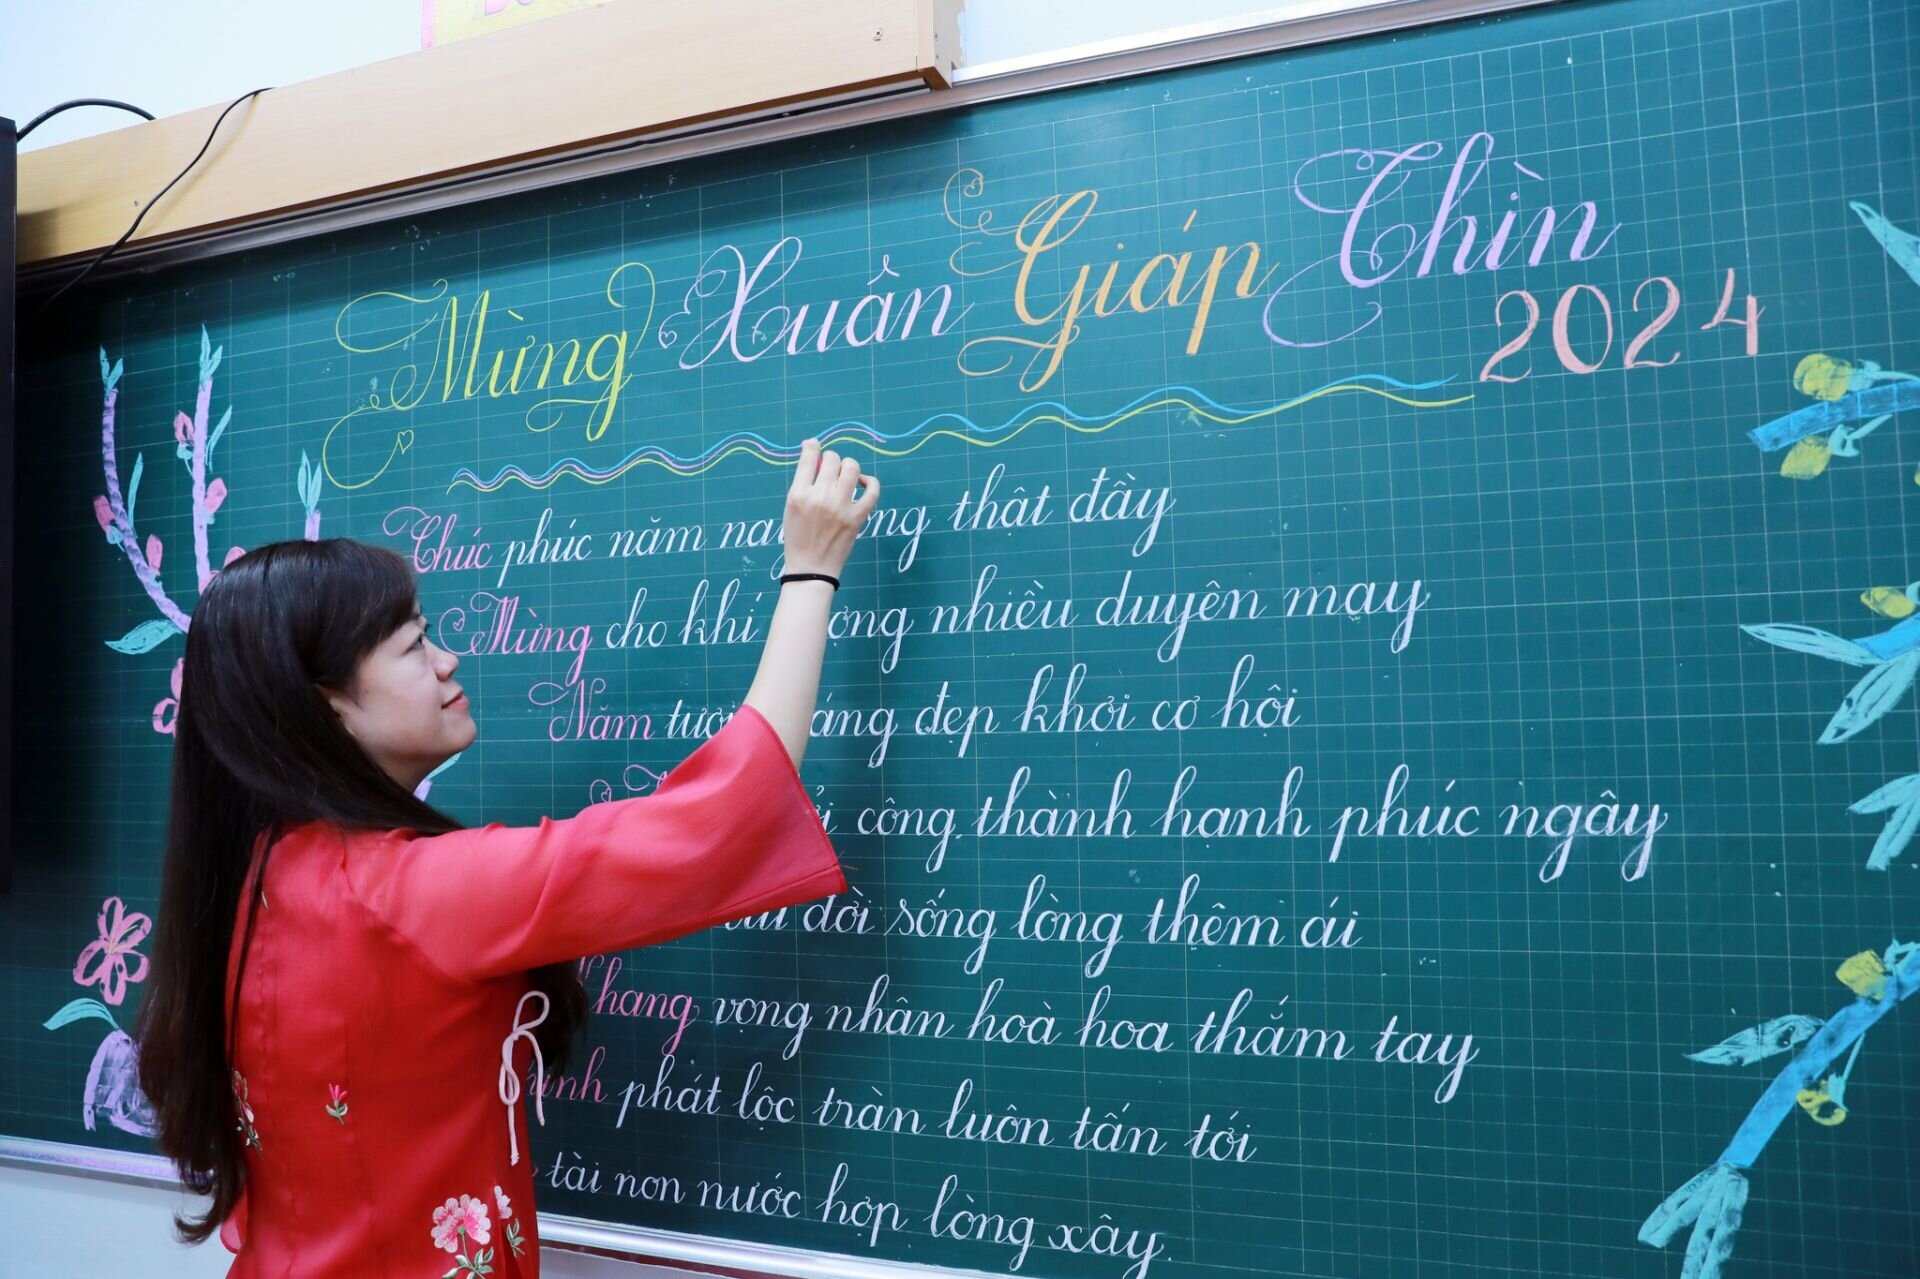 Mừng Xuân Giáp Thìn
2024
Chúc phúc năm nay thật đầy
Mừng cho khí nhiều duyên may
Năm đẹp khơi cơ hội
công thành hạnh phúc ngây
đời sống lòng thêm ái
Khang vọng nhân hoà hoa thắm tay
phát lộc tràn luôn tấn tới
tài non nước hợp lòng xây.